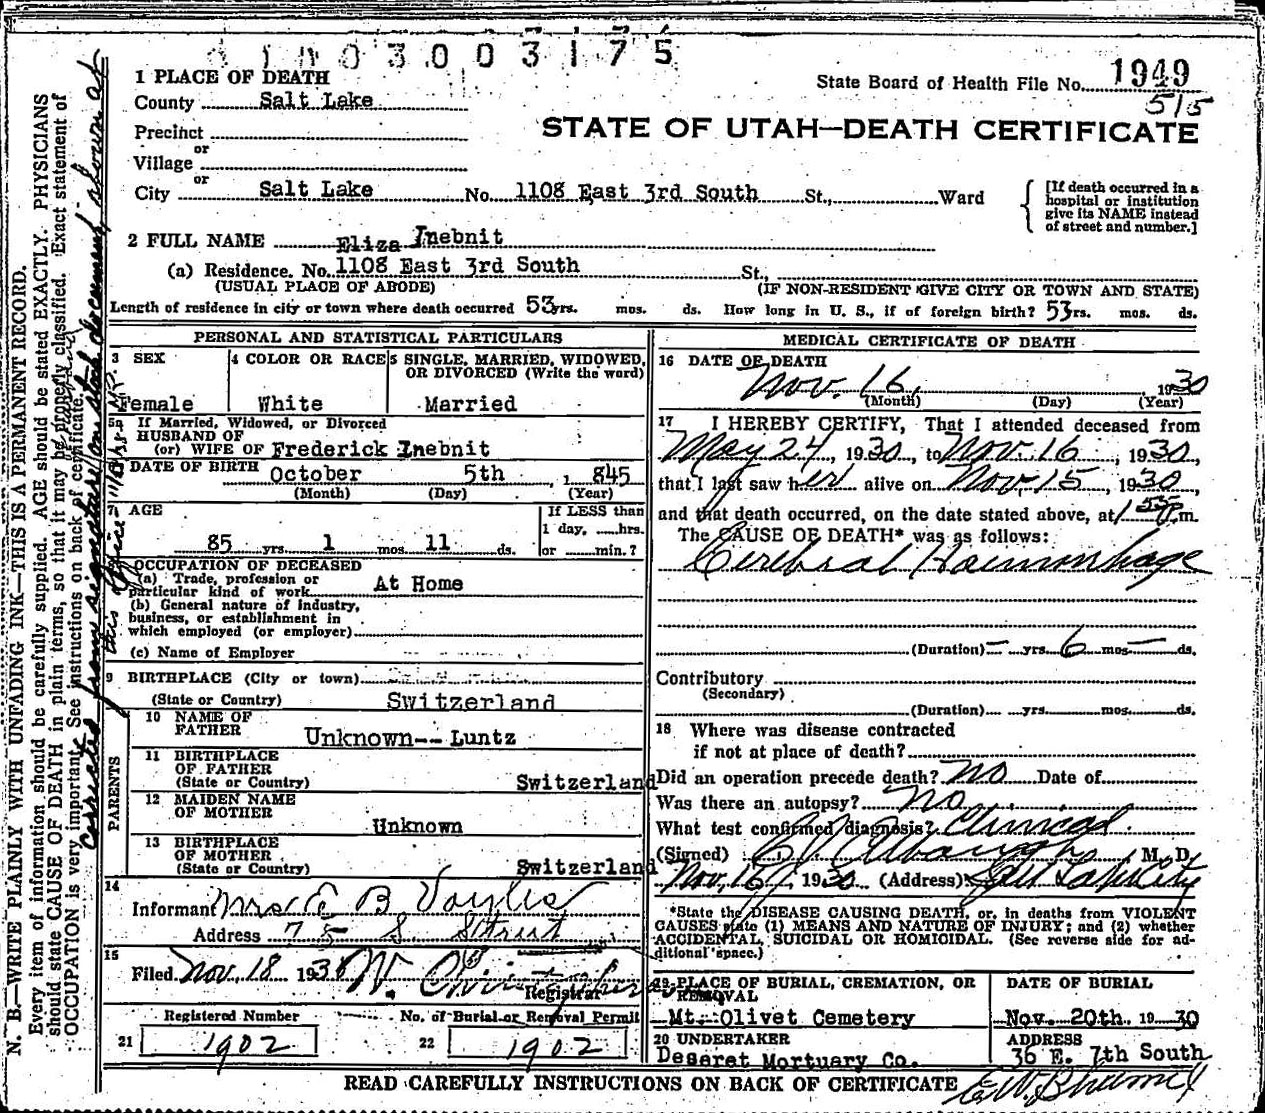 3003175
1 PLACE OF DEATH
State Board of Health File No. 1949
County Salt Lake
515
STATE OF UTAH—DEATH CERTIFICATE
Precinct
or
Village
or
City Salt Lake No. 1108 East 3rd South St., Ward
[If death occurred in a
hospital or institution
give its NAME instead
of street and number.]
2 FULL NAME Eliza Inebnit
(a) Residence. No. 1108 East 3rd South St.,
(USUAL PLACE OF ABODE) (IF NON-RESIDENT GIVE CITY OR TOWN AND STATE)
Length of residence in city or town where death occurred 53 yrs. mos. ds. How long in U. S., if of foreign birth? 53 yrs. mos. ds.
PERSONAL AND STATISTICAL PARTICULARS
3 SEX
Female
4 COLOR OR RACE
White
5 SINGLE, MARRIED, WIDOWED,
OR DIVORCED (Write the word)
Married
5a If Married, Widowed, or Divorced
HUSBAND OF
(or) WIFE OF Frederick Inebnit
DATE OF BIRTH October 5th, 1845
(Month) (Day) (Year)
7 AGE
85 yrs. 1 mos. 11 ds.
If LESS than
1 day, hrs.
or min.?
OCCUPATION OF DECEASED
(a) Trade, profession or
particular kind of work At Home
(b) General nature of industry,
business, or establishment in
which employed (or employer)
(c) Name of Employer
9 BIRTHPLACE (City or town)
(State or Country) Switzerland
PARENTS
10 NAME OF
FATHER
Unknown-- Luntz
11 BIRTHPLACE
OF FATHER
(State or Country) Switzerland
12 MAIDEN NAME
OF MOTHER
Unknown
13 BIRTHPLACE
OF MOTHER
(State or Country) Switzerland
14
Informant Mrs E B Voyles
Address 75 S. Street
15
Filed Nov. 18 1930 W. Christopherson
Registrar
Registered Number
21 1902
No. of Burial or Removal Permit
22 1902
MEDICAL CERTIFICATE OF DEATH
16 DATE OF DEATH
Nov. 16, 1930
(Month) (Day) (Year)
17 I HEREBY CERTIFY, That I attended deceased from
May 24, 1930, to Nov. 16, 1930,
that I last saw her alive on Nov. 15, 1930,
and that death occurred, on the date stated above, at 1 55 P.m.
The CAUSE OF DEATH* was as follows:
Cerebral Haemorrhage
(Duration) — yrs. 6 mos. — ds.
Contributory
(Secondary)
(Duration) yrs. mos. ds.
18 Where was disease contracted
if not at place of death?
Did an operation precede death? No Date of
Was there an autopsy? no
What test confirmed diagnosis? Clinical
(Signed) M. D.
Nov. 1930 (Address) Salt Lake City
*State the DISEASE CAUSING DEATH, or, in deaths from VIOLENT
CAUSES state (1) MEANS AND NATURE OF INJURY; and (2) whether
ACCIDENTAL, SUICIDAL OR HOMICIDAL. (See reverse side for ad-
ditional space.)
19 PLACE OF BURIAL, CREMATION, OR
REMOVAL
Mt. Olivet Cemetery
DATE OF BURIAL
Nov. 20th. 19 30
20 UNDERTAKER
Deseret Mortuary Co.
ADDRESS
36 E. 7th South
READ CAREFULLY INSTRUCTIONS ON BACK OF CERTIFICATE
N. B.—WRITE PLAINLY WITH UNFADING INK—THIS IS A PERMANENT RECORD.
Every item of information should be carefully supplied. AGE should be stated EXACTLY. PHYSICIANS
should state CAUSE OF DEATH in plain terms, so that it may be properly classified. Exact statement of
OCCUPATION is very important. See instructions on back of certificate.
Corrected from signature on sta. document shown at
this office